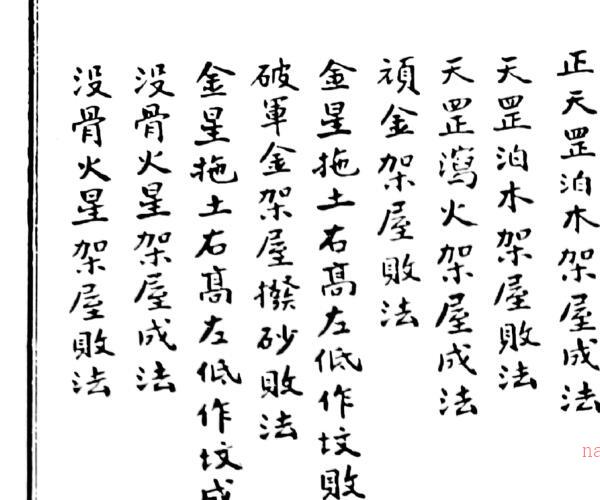 正天罡泊木架屋成法
天罡泊木架屋敗法
天罡瀉火架屋成法
頑金架屋敗法
金星拖土右高左低作坟敗
破軍金架屋撥砂敗法
金星拖土右高左低作坟成
没骨火星架屋成法
没骨火星架屋敗法
na